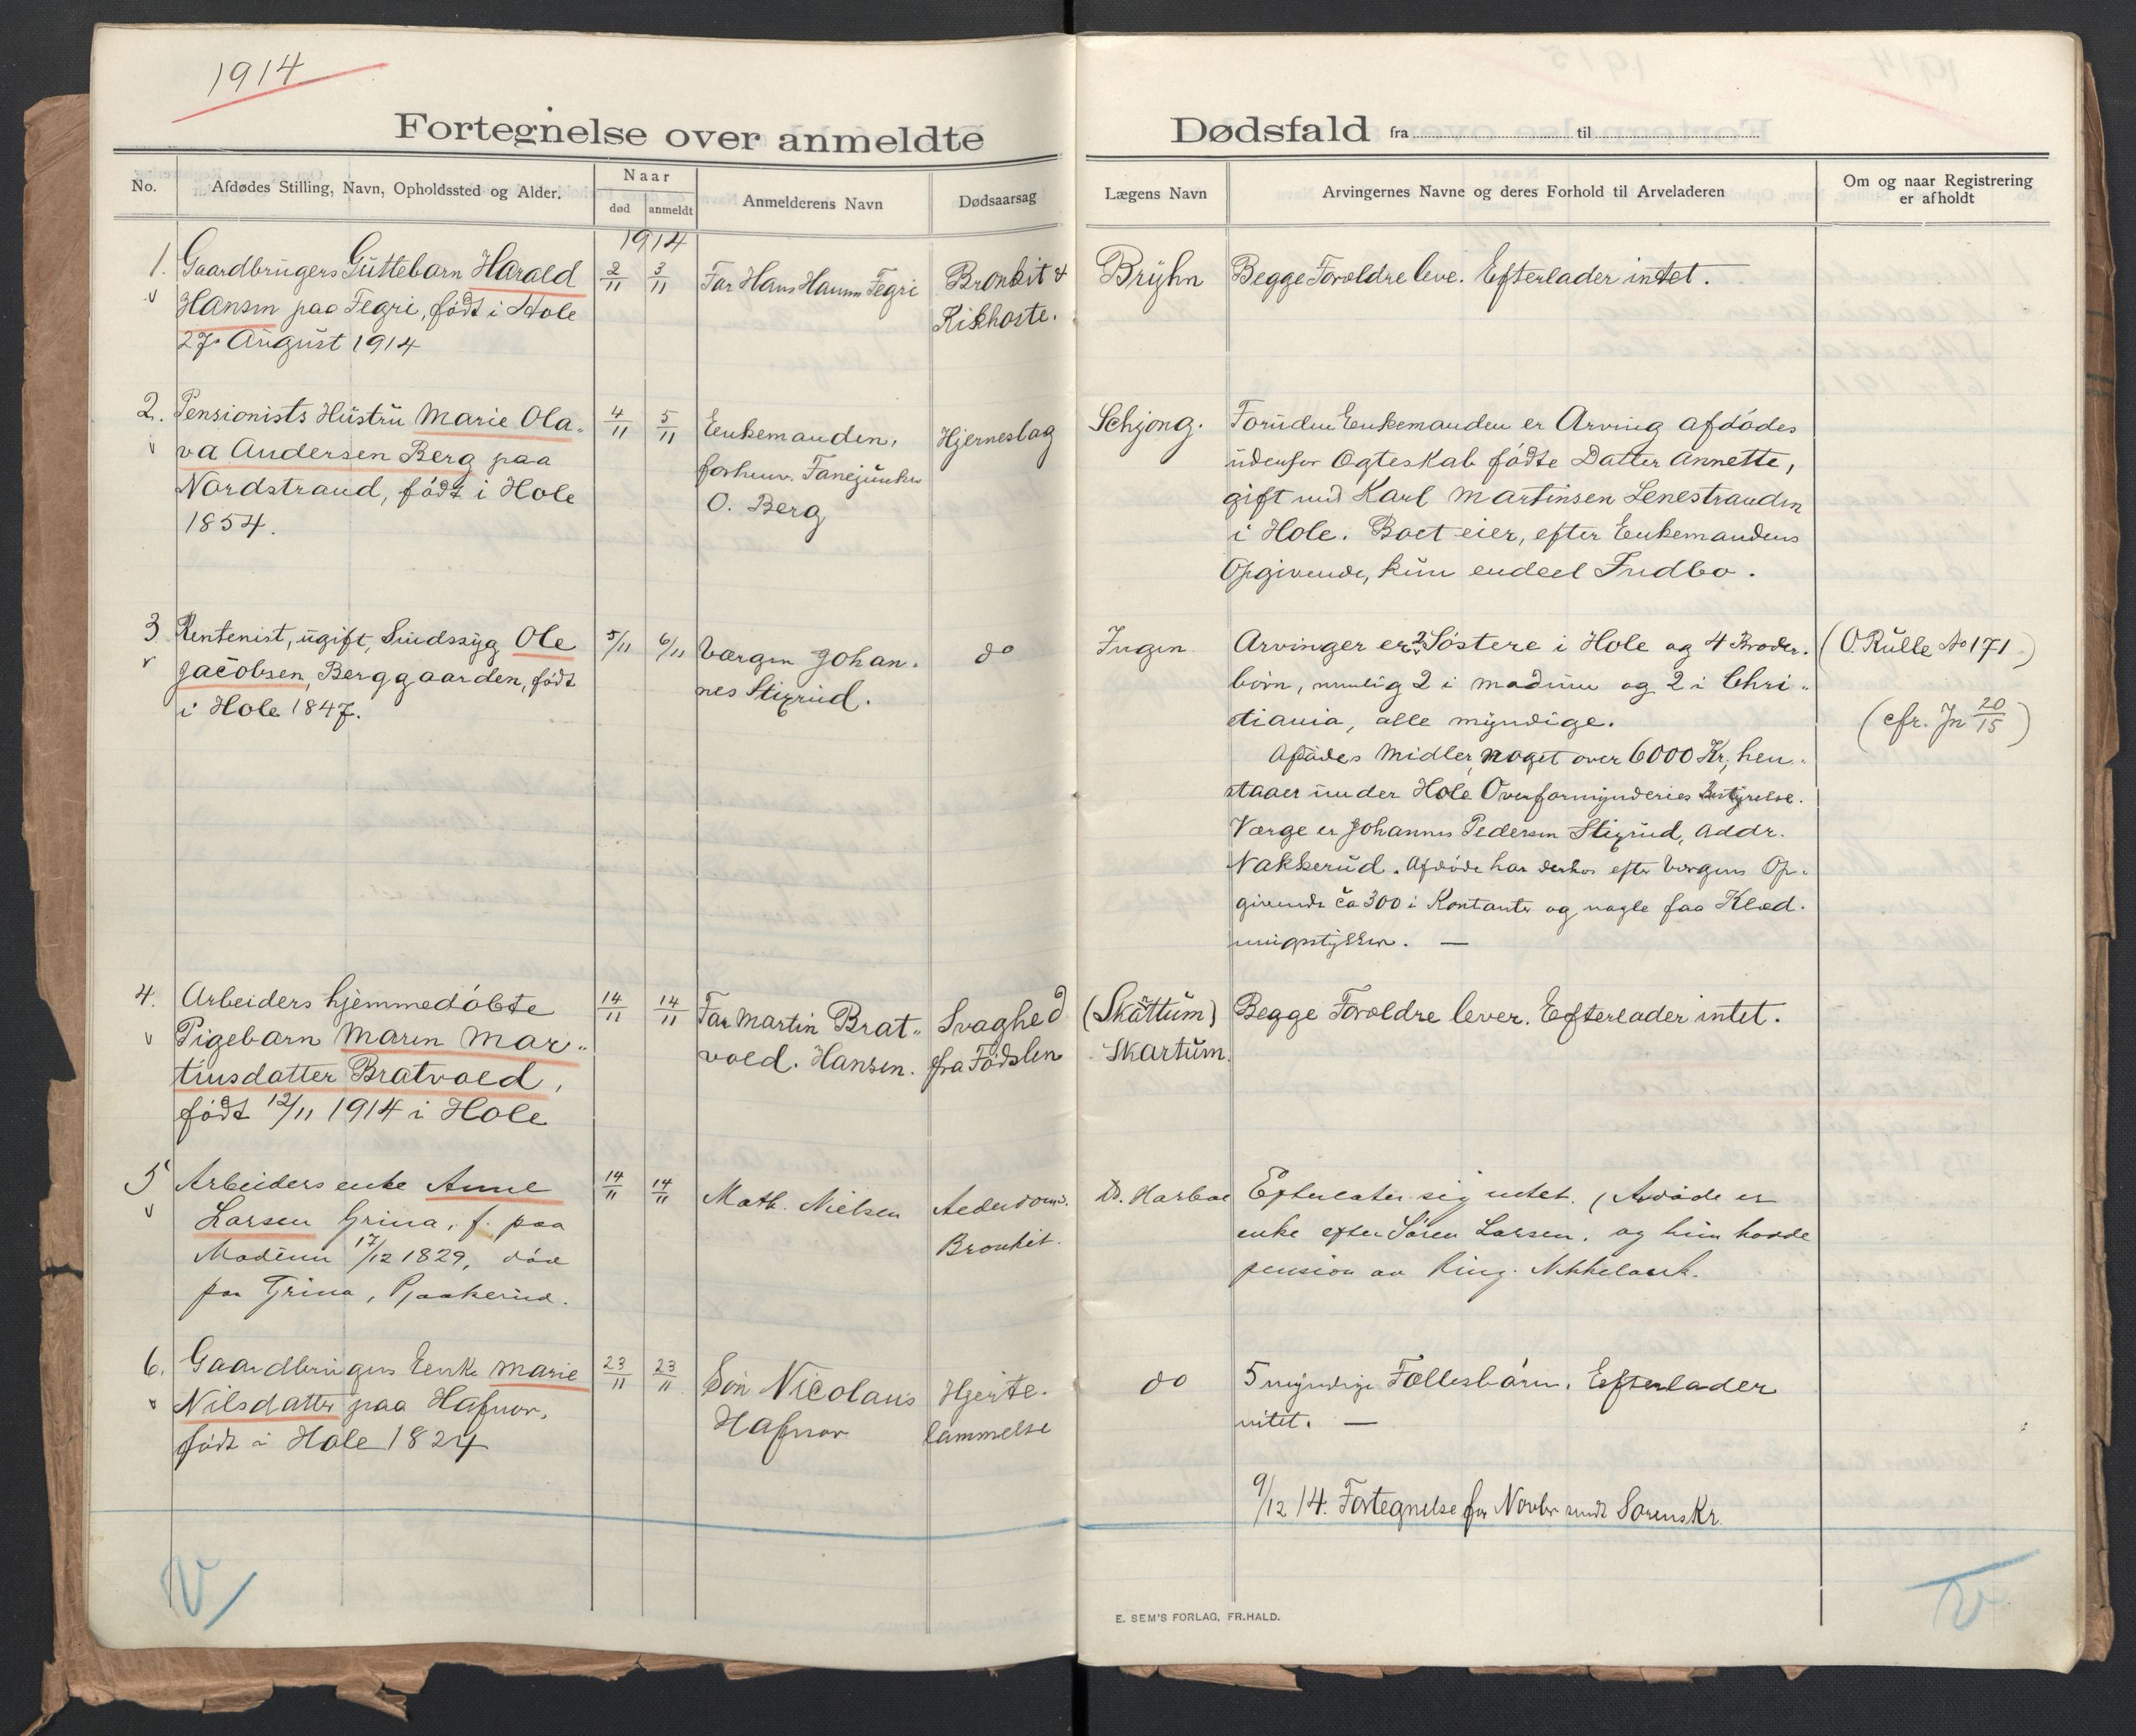 1914
Fortegnelse over anmeldte Dødsfald fra til
No.
Afdødes Stilling, Navn, Opholdssted og Alder.
Naar
død
anmeldt
Anmelderens Navn
Dødsaarsag
Lægens Navn
Arvingernes Navne og deres Forhold til Arveladeren
Om og naar Registrering
er afholdt
1914
1. Gaardbrugers Guttebarn Harald
Hansen paa Fegri, født i Hole
27. August 1914
2/11
3/11
Far Hans Hansen Fegri
Bronkit &
Kikhoste.
Bryhn
Begge Forældre leve. Efterlader intet.
2. Pensionists Hustru Marie Ola-
va Andersen Berg paa
Nordstrand, født i Hole
1854.
4/11
5/11
Enkemanden,
forhenv. Fanejunker
O. Berg
Hjerneslag
Schjong.
Foruden Enkemanden er Arving afdødes
udenfor Ægteskab fødte Datter Annette,
gift med Karl Martinsen Lenestranden
i Hole. Boet eier, efter Enkemandens
Opgivende, kun endeel Indbo.
3 Rentenist, ugift, Sindssyg Ole
Jacobsen, Berggaarden, født
i Hole 1847.
5/11
6/11
Værgen Johan-
nes Stixrud.
do
Ingen
Arvinger er 2 Søstere i Hole og 4 Broder-
børn, nemlig 2 i Modum og 2 i Chri-
stiania, alle myndige.
Afdødes Midler, noget over 6000 Kr, hen-
staaer under Hole Overformynderies Bestyrelse.
Værge er Johannes Pedersen Stixrud, addr.
Nakkerud. Afdøde har derhos efter Værgens Op-
givende ca 300 i Kontanter og nogle faa Klæd-
ningsstykker. —
(O. Rulle No 171)
(cfr. Jn 20/15)
4. Arbeiders hjemmedøbte
Pigebarn Maren Mar-
tinsdatter Bratvold,
født 12/11 1914 i Hole
14/11
14/11
Far Martin Brat-
vold. Hansen.
Svaghed
fra Fødslen
(Skattum)
Skartum.
Begge Forældre lever. Efterlader intet.
5 Arbeiders enke Anne
Larsen Grina, f. paa
Modum 17/12 1829, død
paa Grina,
14/11
14/11
Math. Nielsen
Bronkit.
Dr. Harboe
Efterlater sig intet. (Avdøde er
enke efter Søren Larsen, og hun havde
pension av Ring. Nikkelverk.
6. Gaardbrugers Enke Marie
Nilsdatter paa Hafnor,
født i Hole 1824
23/11
23/11
Søn Nicolaus
Hafnor
Hjerte-
lammelse
do
5 myndige Fællesbørn. Efterlader
intet. —
9/12 14. Fortegnelse for Novbr sendt Sorenskr.
E. SEM'S FORLAG, FR.HALD.